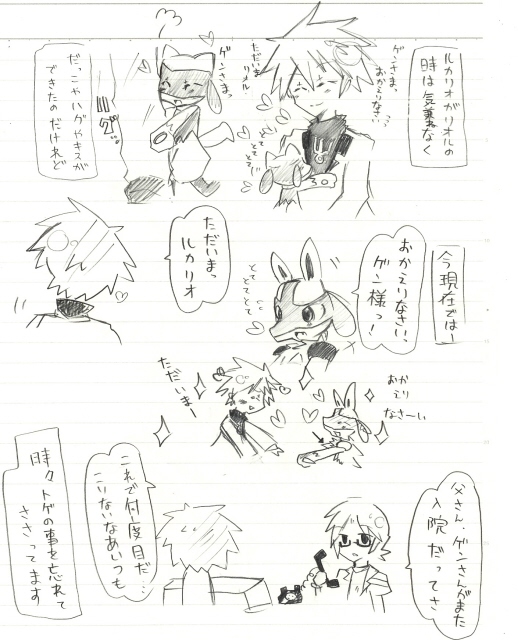 ルカリオがリオルの
時は気兼ねなく
ゲンさま、
おかえりなさい、
ただいま
リオル
ゲンさまっ
とてとて
だっこやハグやキスが
できたのだけれど
今現在では―
おかえりなさい、
ゲン様っ!
とてとてとて
ただいまっ
ルカリオ
おかえり
なさーい
ただいまー
父さん、ゲンさんがまた
入院だってさ
これで何度目だ…
こりないなあいつも
時々トゲの事を忘れて
ささってます